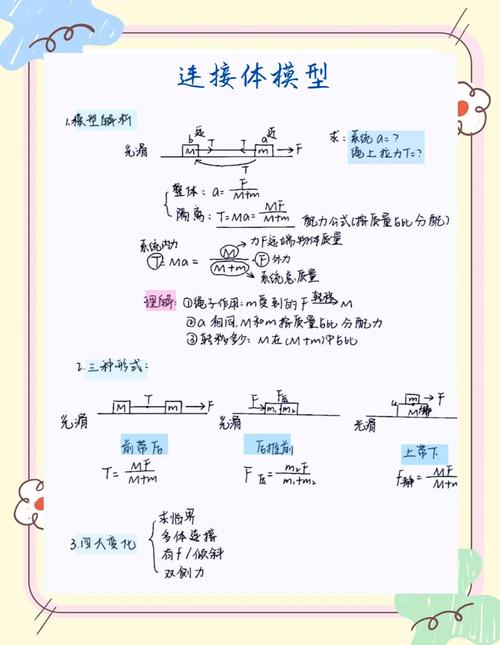 连接体模型
1.模型解析
b远 a近
光滑 M T T m F
T
求:系统a=?
绳上拉力T=?
整体:a=F/(M+m)
隔离:T=Ma=MF/(M+m) 配力公式(按质量占比分配)
系统内力 T=Ma=M/(M+m)·F外力
力F远端物体质量
系统总质量
理解:①绳子作用:m受到的F转移→M
②a相同,M和m按质量占比分配力
③转移多少:M在(M+m)中占比
2.三种形式:
光滑 M T m F
前带后
T=MF/(M+m)
光滑 F F压 m₁m₂
后推前
F压=m₂F/(m₁+m₂)
光滑 m F M
上带下
f静=MF/(M+m)
3.四大变化
求临界
多体连接
有f/倾斜
双侧力